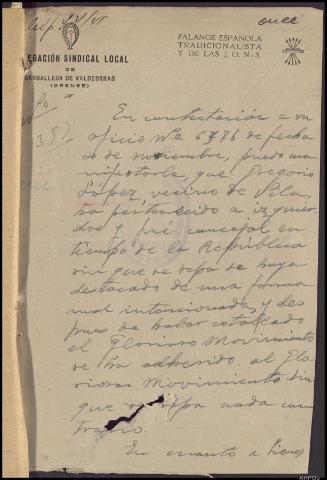 once
FALANGE ESPAÑOLA
TRADICIONALISTA
Y DE LAS J. O. N. S.
EGACIÓN SINDICAL LOCAL
DE
CARBALLEDA DE VALDEORRAS
(ORENSE)
En contestación a su
oficio Nº 6776 de fecha
de noviembre, puedo ma
nifestarle, que Gregorio
López, vecino de Vila,
ha pertenecido a izquier
das y fué concejal en
tiempo de la República
sin que se sepa se haya
destacado de una forma
mal intencionada, y des
pues de haber estallado
el Glorioso Movimiento
se ha adherido al Glo
rioso Movimiento sin
que se sepa nada con
trario.
En cuanto a